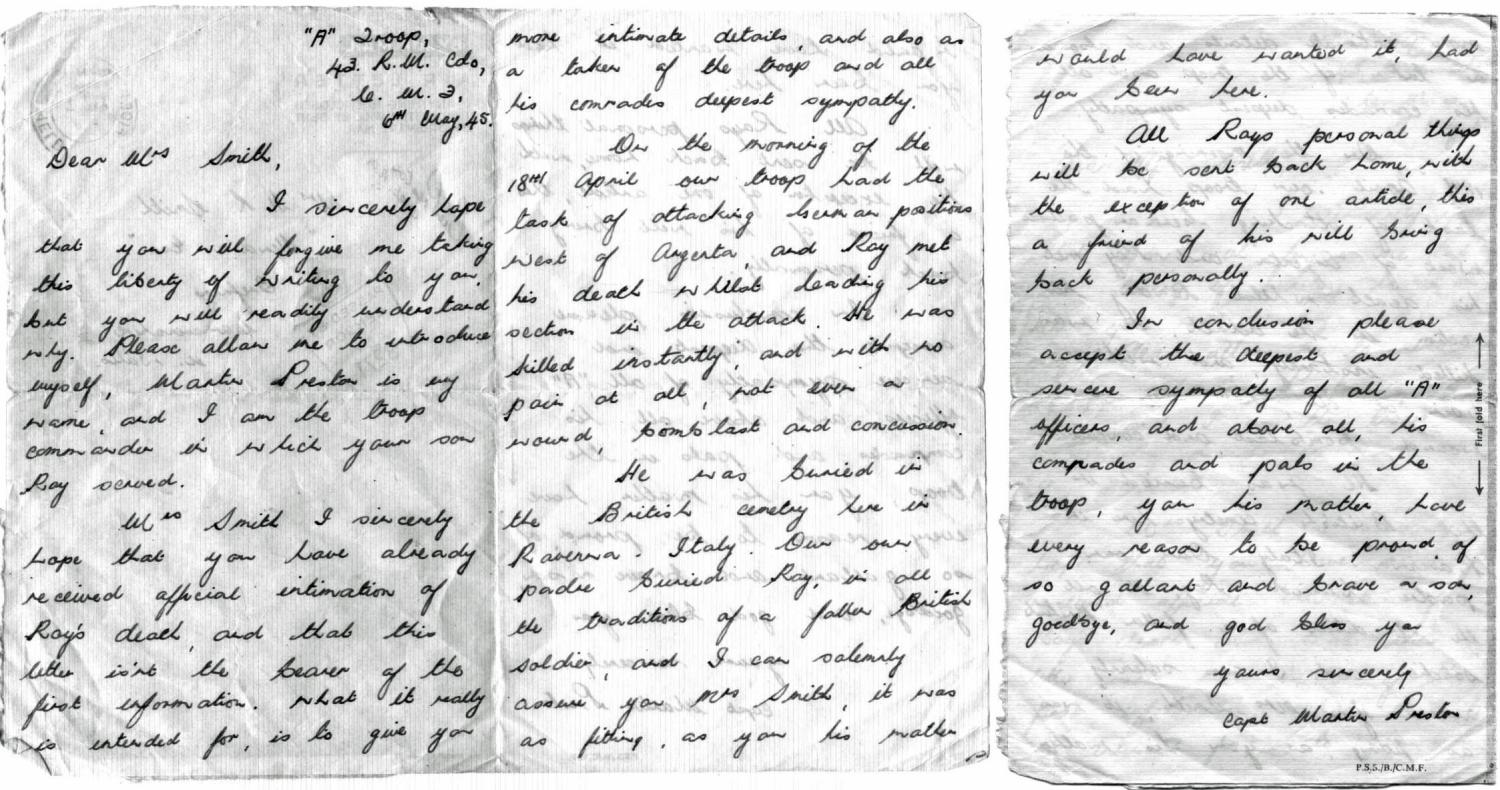 "A" Troop,
43. R.M. Cdo,
C. M. F,
6TH May, 45.
Dear Mrs Smith,
I sincerely hope
that you will forgive me taking
this liberty of writing to you,
but you will readily understand
why. Please allow me to introduce
myself, Martin Preston is my
name, and I am the troop
commander in which your son
Ray served.
Mrs Smith I sincerely
hope that you have already
received official intimation of
Ray's death, and that this
letter isn't the bearer of the
first information. What it really
is intended for, is to give you
more intimate details, and also as
a token of the troop and all
his comrades deepest sympathy.
On the morning of the
18TH April our troop had the
task of attacking German positions
west of Argenta, and Ray met
his death whilst leading his
section in the attack. He was
killed instantly, and with no
pain at all, not even a
wound, bomb last and concussion.
He was buried in
the British cemetry here in
Ravenna. Italy. Our own
padre buried Ray, in all
the traditions of a fallen British
soldier, and I can solemnly
assure you Mrs Smith, it was
as fitting, as you his mother
would have wanted it, had
you been here.
All Rays personal things
will be sent back home, with
the exception of one article, this
a friend of his will bring
back personally.
In conclusion please
accept the deepest and
sincere sympathy of all "A"
officers, and above all, his
comrades and pals in the
troop, you his mother, have
every reason to be proud of
so gallant and brave a son,
goodbye, and god bless you
yours sincerely
Capt Martin Preston
First fold here
P.S.5./B./C.M.F.